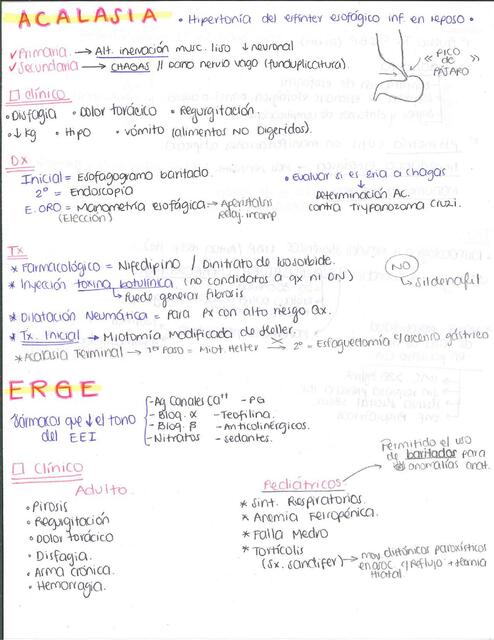 ACALASIA • Hipertonía del esfínter esofágico inf. en reposo •
✓ Primaria → Alt. inervación musc. liso ↓ neuronal
✓ Secundaria → CHAGAS // Daño nervio vago (funduplicatura).
« PICO DE PÁJARO »
□ clínico
• Disfagia • Dolor torácico • Regurgitación.
• ↓ kg • Hipo • vómito (alimentos NO Digeridos).
Dx
Inicial = Esofagograma baritado.
2º = Endoscopía
E. ORO = Manometría esofágica → Aperistalsis
(Elección) Relaj. incomp
• Evaluar si es 2ria a chagas
↓
Determinación Ac.
contra Trypanozoma Cruzi.
Tx
* Farmacológico = Nifedipino / Dinitrato de Isosorbide.
NO → Sildenafil
* Inyección toxina botulínica (no candidatos a qx ni DN)
↳ Puede generar fibrosis
* Dilatación Neumática = Para Px con alto riesgo Qx.
* Tx. Inicial → Miotomía Modificada de Heller.
* Acalasia Terminal → 1º Paso = Miot. Heller → 2º = Esofaguectomía c/ascenso gástrico
ERGE
Fármacos que ↓ el tono
del EEI
- Ag Canales Ca++ - PG
- Bloq. α - Teofilina.
- Bloq. β - Anticolinérgicos.
- Nitratos - sedantes.
□ Clínico
Adulto.
• Pirosis
• Regurgitación
• Dolor torácico
• Disfagia.
• Asma crónica.
• Hemorragia.
Pediátricos
Permitido el uso
de baritados para
anomalías anat.
* Sint. Respiratorios.
* Anemia Ferropénica.
* Falla Medro
* Tortícolis
(Sx. Sandifer) → mov distónicos paroxísticos
en asoc. c/Reflujo + Hernia
hiatal.